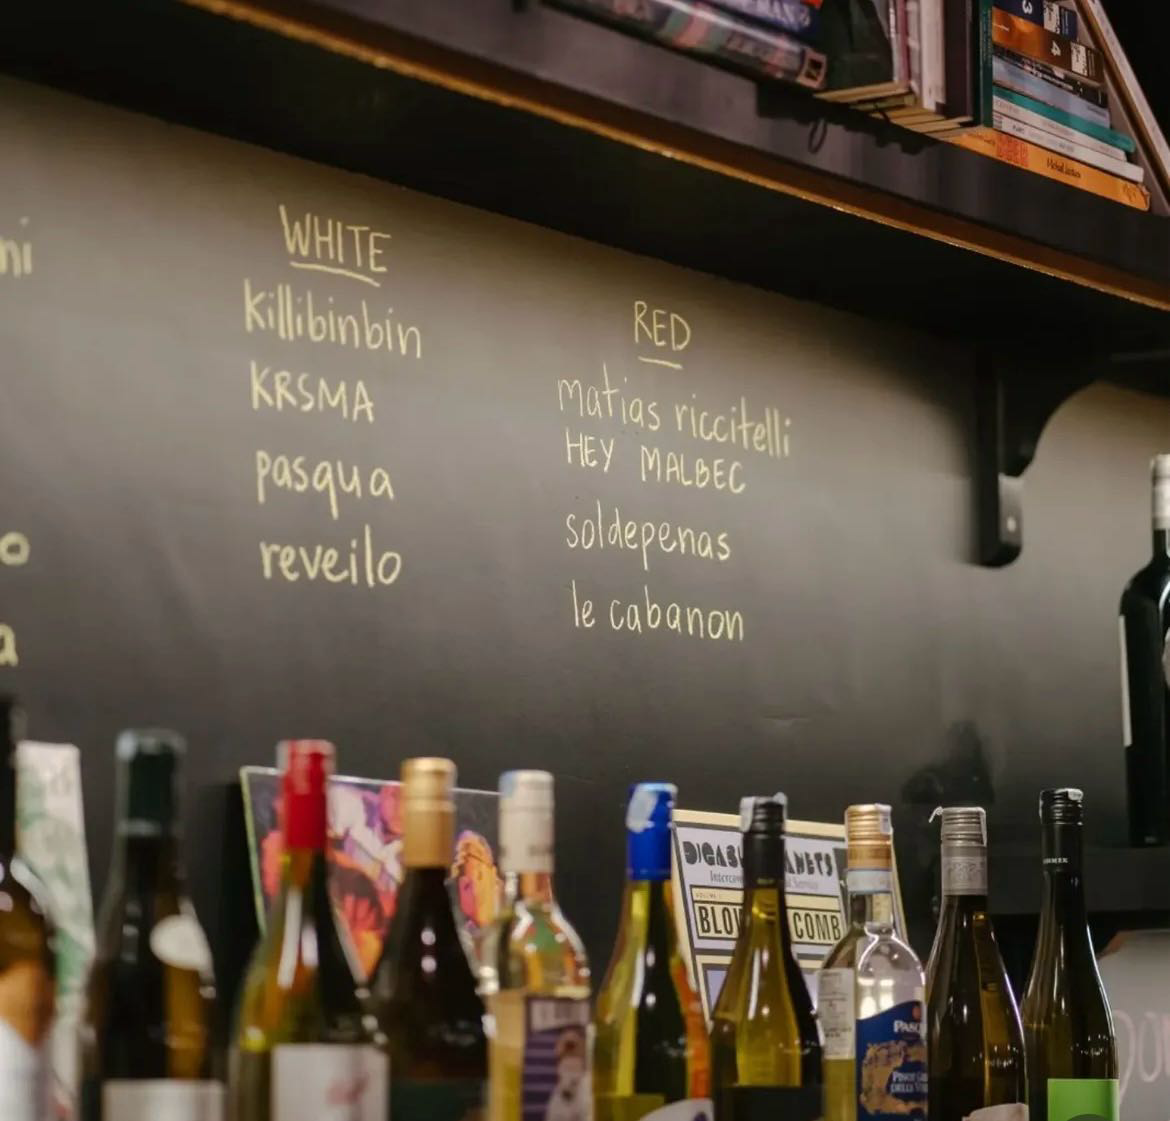 WHITE
killibinbin
KRSMA
pasqua
reveilo
RED
matias riccitelli
HEY MALBEC
soldepenas
le cabanon
BLOW
COMB